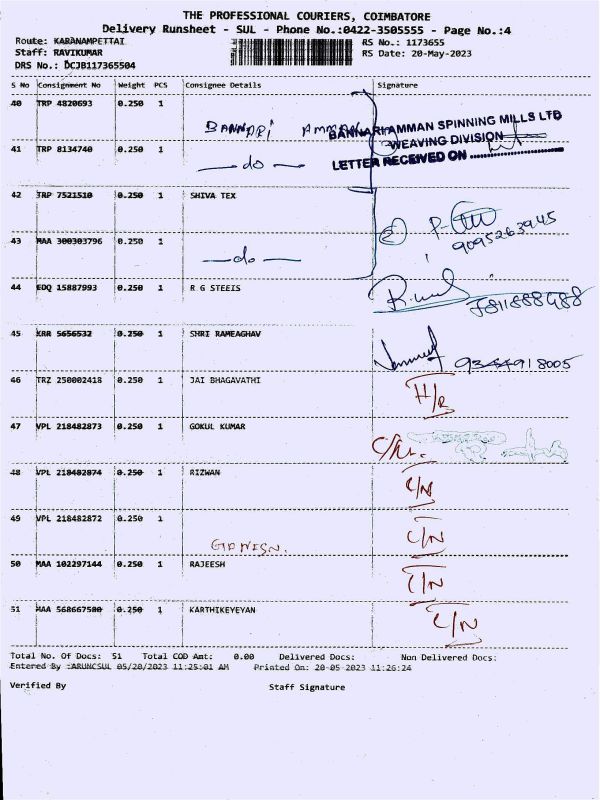 THE PROFESSIONAL COURIERS, COIMBATORE
Delivery Runsheet - SUL - Phone No.:0422-3505555 - Page No.:4
Route: KARANAMPETTAI
RS No.: 1173655
Staff: RAVIKUMAR
RS Date: 20-May-2023
DRS No.: DCJB117365504
S No Consignment No Weight PCS Consignee Details Signature
40 TRP 4820693 0.250 1
BANNARI AMMAN
BANNARI AMMAN SPINNING MILLS LTD
WEAVING DIVISION
LETTER RECEIVED ON
41 TRP 8134740 0.250 1
do
42 TRP 7521510 0.250 1 SHIVA TEX
9095263945
43 MAA 300303796 0.250 1
do
44 EDQ 15887993 0.250 1 R G STEEIS
45 KRR 5656532 0.250 1 SHRI RAMEAGHAV
9344918005
46 TRZ 250002418 0.250 1 JAI BHAGAVATHI
47 VPL 218482873 0.250 1 GOKUL KUMAR
48 VPL 218482874 0.250 1 RIZWAN
C/N
49 VPL 218482872 0.250 1
C/N
50 MAA 102297144 0.250 1 RAJEESH
C/N
51 MAA 568667580 0.250 1 KARTHIKEYEYAN
C/N
Total No. Of Docs: 51 Total COD Amt: 0.00 Delivered Docs: Non Delivered Docs:
Entered By :ARUNCSUL 05/20/2023 11:25:01 AM Printed On: 20-05-2023 11:26:24
Verified By Staff Signature